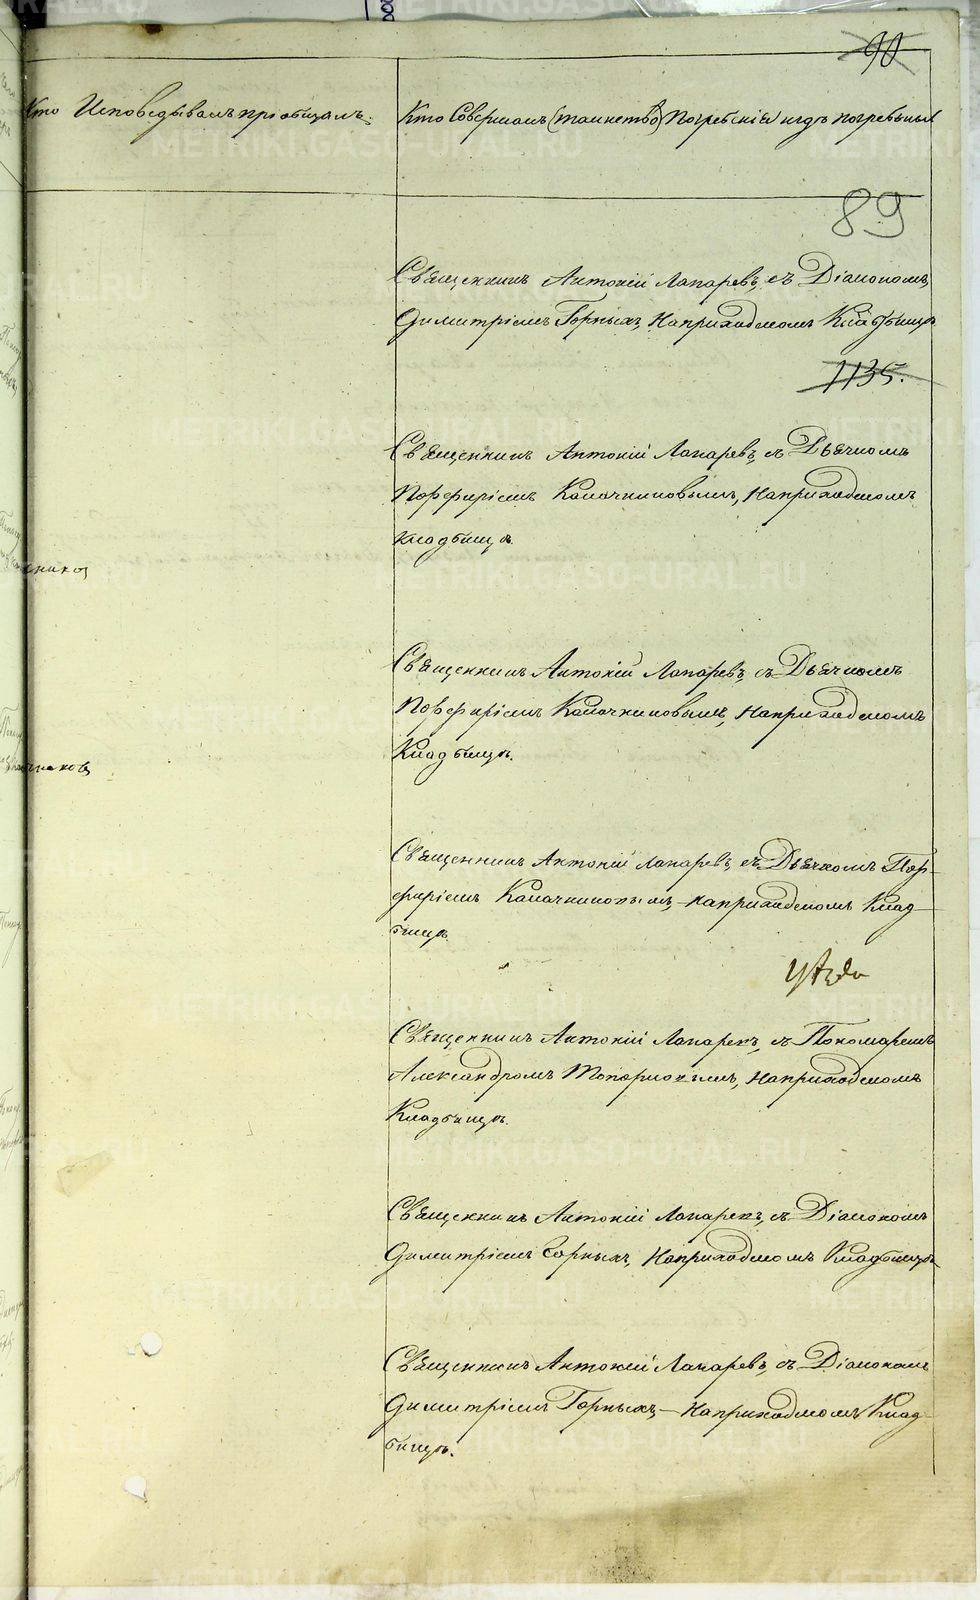 90
Кто Исповѣдывалъ пріобщалъ:
Кто Совершалъ (таинство) Погребенія надъ погребены
89
Священникъ Антоній Лапаревъ, съ Діакономъ
Димитріемъ Горныхъ, На приходскомъ Кладбищѣ
1135.
Священникъ Антоній Лапаревъ, съ Дьячкомъ
Порфиріемъ Калачниковымъ, На приходскомъ
кладбищѣ.
Священникъ Антоній Лапаревъ, съ Дьячкомъ
Порфиріемъ Калачниковымъ, На приходскомъ
Кладбищѣ.
Священникъ Антоній Лапаревъ, съ Дьячкомъ Пор-
фиріемъ Калачниковымъ, на приходскомъ Клад-
бищѣ
Священникъ Антоній Лапаревъ, съ Пономаремъ
Александромъ Топорковымъ, На приходскомъ
Кладбищѣ.
Священникъ Антоній Лапаревъ, съ Діакономъ
Димитріемъ Горныхъ, На приходскомъ Кладбищѣ
Священникъ Антоній Лапаревъ, съ Діакономъ
Димитріемъ Горныхъ, — На приходскомъ Клад-
бищѣ.
METRIKI.GASO-URAL.RU